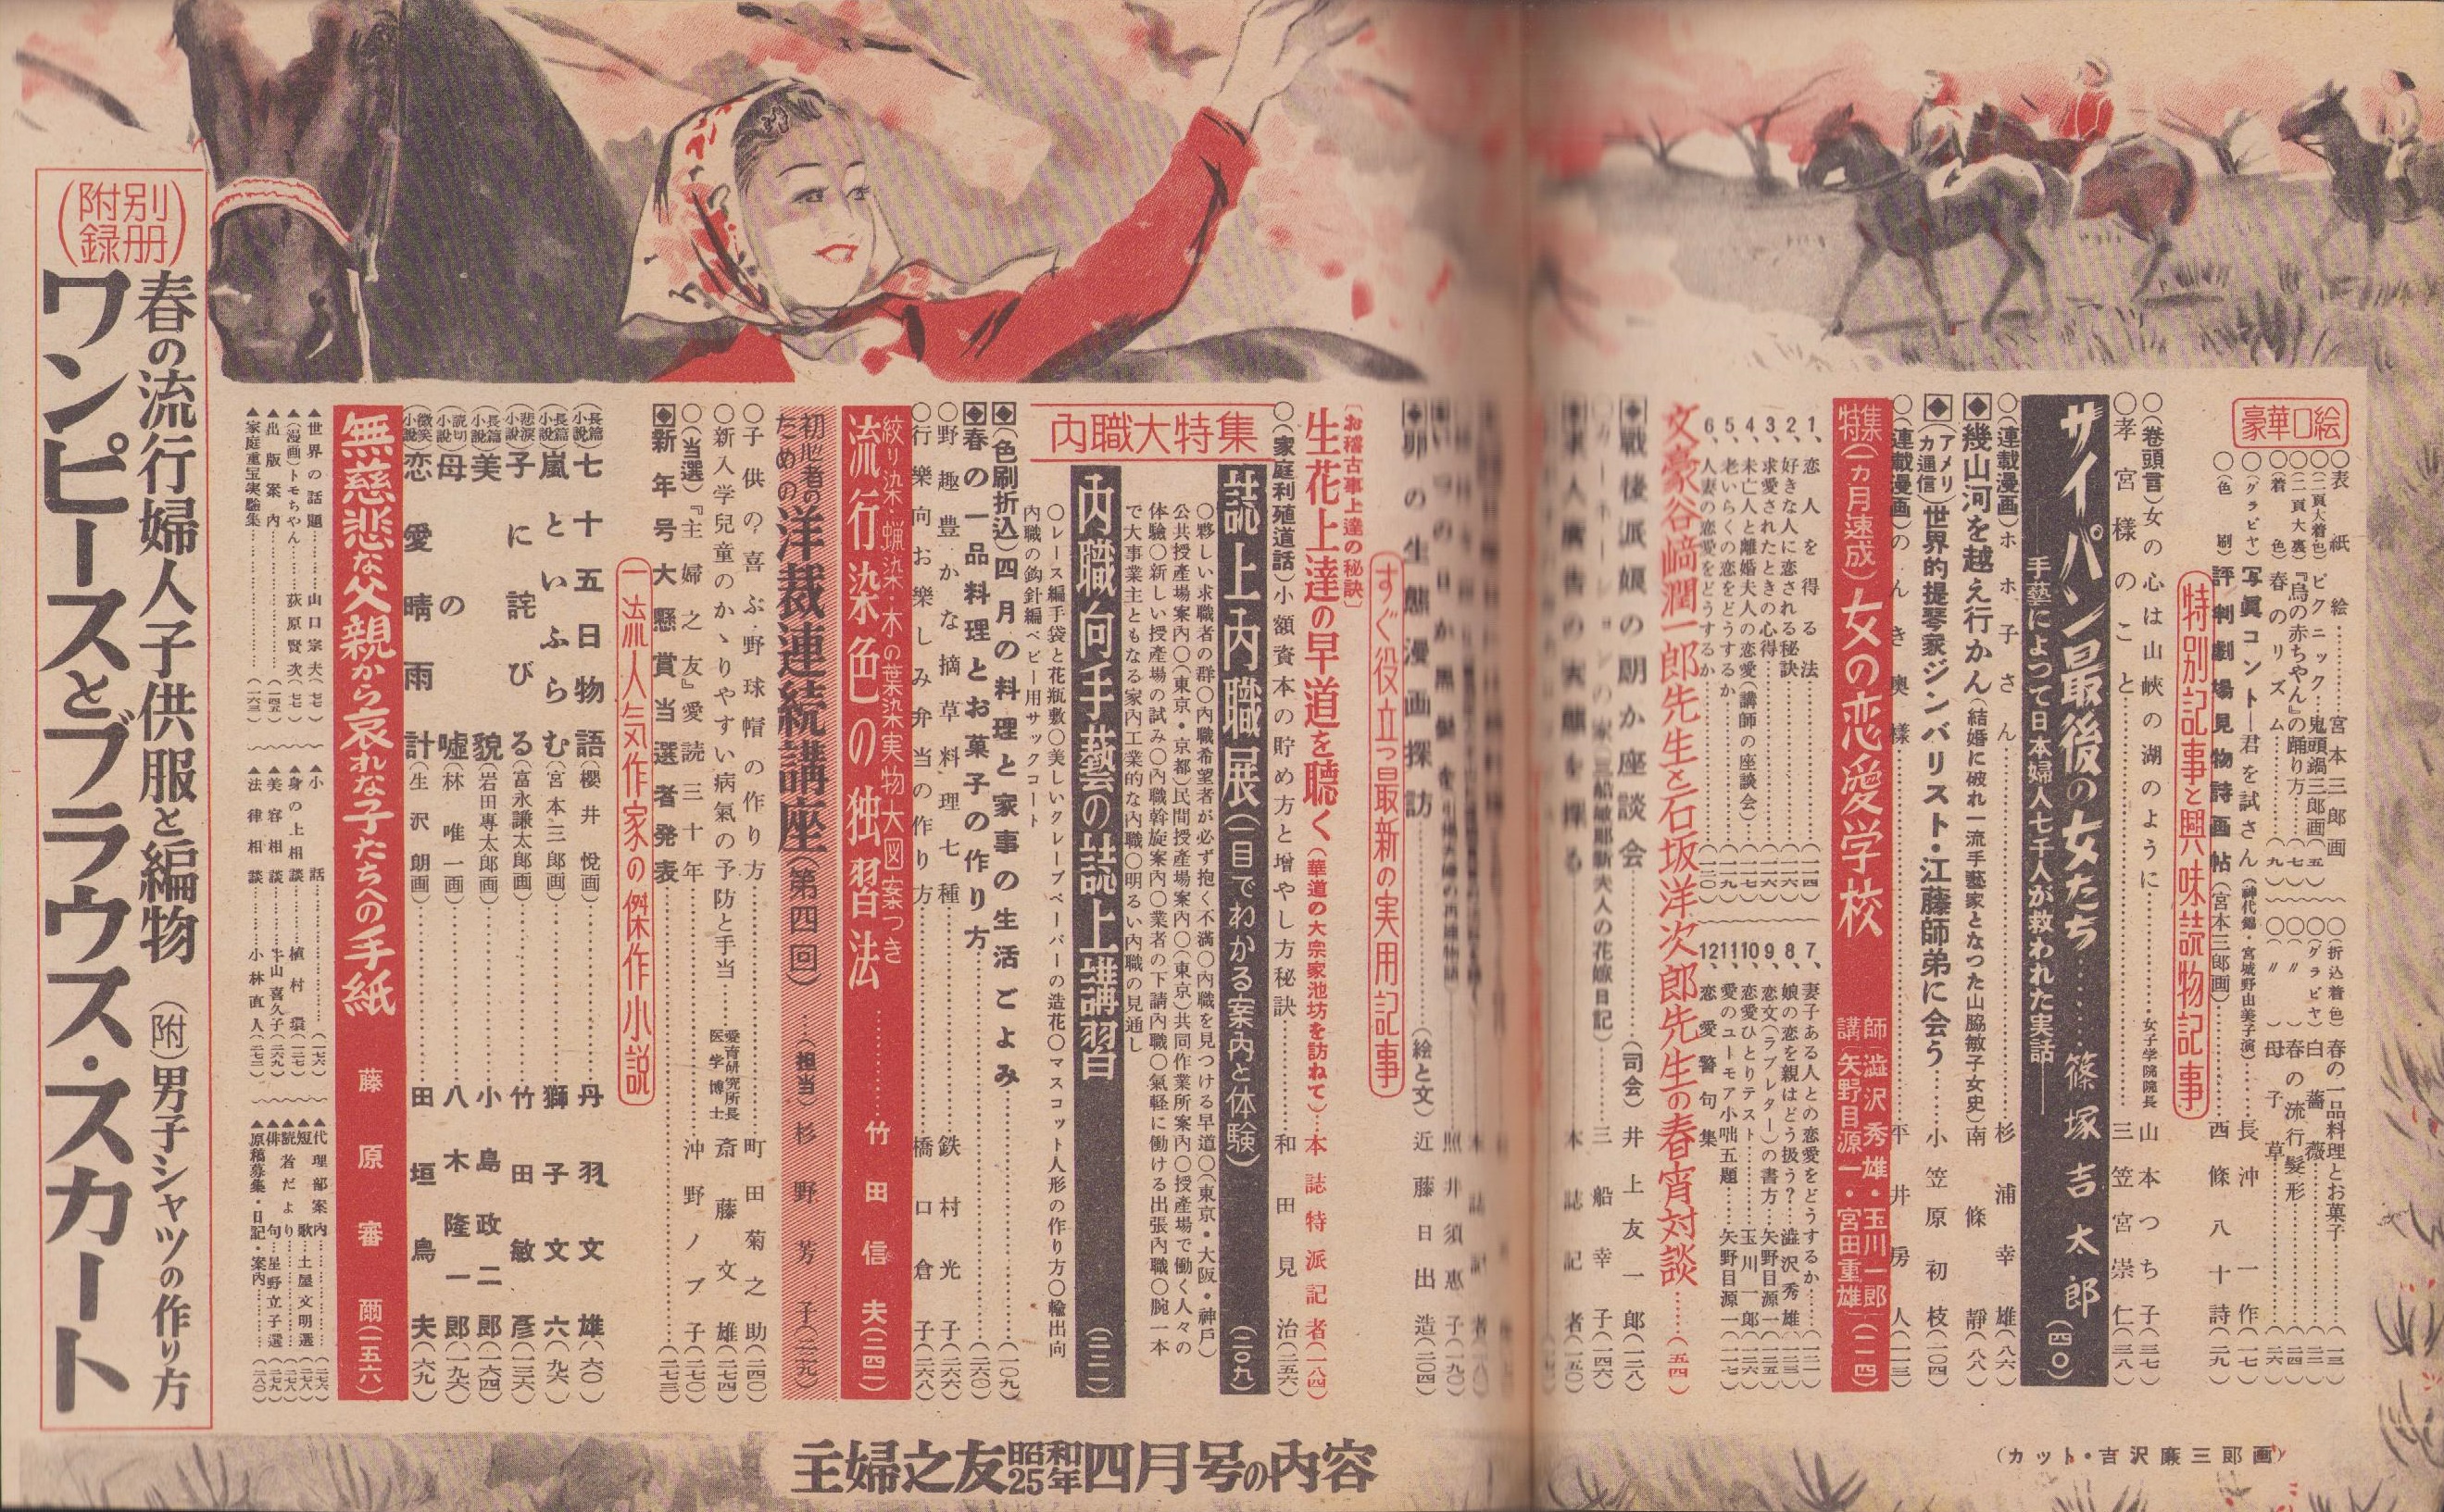 豪華口絵
○表紙絵…………宮本三郎画
○(二頁大着色)ピクニック・鬼頭鍋三郎画(五)
○(二頁大裏)『烏の赤ちやん』の踊り方……(七)
○(着色)春のリズム……(九)
○(グラビヤ)写眞コント―君を試さん(神代錦・宮城野由美子演)……長沖一作(一七)
○(色刷)評判劇場見物詩画帖(宮本三郎画)……西條八十詩(二九)
○(折込着色)春の一品料理とお菓子……(一三)
○(グラビヤ)白薔薇……(二一)
○(〃)春の流行髪形……(二四)
○(〃)母子草……(二六)
特別記事と興味読物記事
○(巻頭言)女の心は山峡の湖のように…女子学院院長 山本つち子(三七)
○孝宮様のこと……三笠宮崇仁(三八)
サイパン最後の女たち……篠塚吉太郎(四〇)
手藝によつて日本婦人七千人が救われた実話――
○(連載漫画)ホホ子さん……杉浦幸雄(八六)
◆幾山河を越え行かん(結婚に破れ一流手藝家となつた山脇敏子女史)南條靜(八八)
◆(アメリカ通信)世界的提琴家ジンバリスト・江藤師弟に会う……小笠原初枝(一〇四)
○(連載漫画)のんき奥様……平井房人(一一三)
特集(一カ月速成)女の恋愛学校 講師 澁沢秀雄・玉川一郎 矢野目源一・宮田重雄(一一四)
1、恋人を得る法……(一一四)
2、好きな人に恋される秘訣……(一一六)
3、求愛されたときの心得……(一一六)
4、未亡人と離婚夫人の恋愛(講師の座談会)(一一七)
5、老いらくの恋をどうするか……(一一九)
6、人妻の恋愛をどうするか……(一二〇)
7、妻子ある人との恋愛をどうするか……(一二一)
8、娘の恋を親はどう扱う?…澁沢秀雄(一二三)
9、恋文(ラブレター)の書方…矢野目源一(一二五)
10、恋愛ひとりテスト……玉川一郎(一二六)
11、愛のユーモア小咄五題…矢野目源一(一二七)
12、恋愛警句集
文豪谷崎潤一郎先生と石坂洋次郎先生の春宵対談……(五四)
◆戰後派娘の朗か座談会……(司会)井上友一郎(一二八)
三船幸子(一四六)
求人廣告の実態を探る……本誌記者(一五〇)
照井須惠子(一九〇)
◆卵の生態漫画探訪……(絵と文)近藤日出造(二〇四)
すぐ役立つ最新の実用記事
〔お稽古事上達の秘訣〕
生花上達の早道を聴く(華道の大宗家池坊を訪ねて)…本誌特派記者(一八四)
○(家庭利殖道話)小額資本の貯め方と増やし方秘訣……和田見治(二五六)
内職大特集
誌上内職展(一目でわかる案内と体験)(二〇九)
○夥しい求職者の群○内職希望者が必ず抱く不満○内職を見つける早道○(東京・大阪・神戸)
公共授産場案内○(東京・京都)民間授産場案内○(東京)共同作業所案内○授産場で働く人々の
体験○新しい授産場の試み○内職斡旋案内○業者の下請内職○氣軽に働ける出張内職○腕一本
で大事業主ともなる家内工業的な内職○明るい内職の見通し
内職向手藝の誌上講習(二二一)
○レース編手袋と花瓶敷○美しいクレープペーパーの造花○マスコット人形の作り方○輸出向
内職の鈎針編ベビー用サックコート
◆(色刷折込)四月の料理と家事の生活ごよみ……(一〇九)
◆春の一品料理とお菓子の作り方……(二六〇)
○野趣豊かな摘草料理七種……鉄村光子(二六六)
○行樂向お樂しみ弁当の作り方……橋口倉子(二六八)
絞り染・蝋染・木の葉染実物大図案つき
流行染色の独習法……竹田信夫(二四一)
初心者のための洋裁連続講座(第四回)…(担当)杉野芳子(二三九)
○子供の喜ぶ野球帽の作り方……町田菊之助(二四〇)
○新入学兒童のかゝりやすい病氣の予防と手当…愛育研究所長 医学博士 斎藤文雄(二七四)
○(当選)『主婦之友』愛読三十年……沖野ノブ子(二七〇)
◆新年号大懸賞当選者発表……(二七三)
一流人気作家の傑作小説
(長篇小説)七十五日物語(櫻井悦画)……丹羽文雄(六〇)
(長篇小説)嵐といふらむ(宮本三郎画)……獅子文六(九六)
(悲涙小説)子に詫びる(富永謙太郎画)……竹田敏彦(一三六)
(長篇小説)美貌(岩田専太郎画)……小島政二郎(一六四)
(読切小説)母の嘘(林唯一画)……八木隆一郎(一九六)
(微笑小説)恋愛晴雨計(生沢朗画)……田垣鳥夫(六九)
無慈悲な父親から哀れな子たちへの手紙 藤原審爾(一五六)
▲世界の話題……山口家夫(七)
▲(漫画)トモちやん……荻原賢次(七七)
▲出版案内……(一四五)
▲家庭重宝実驗集……(一六三)
▲小話……(一七六)
▲身の上相談……植村環(一二七)
▲美容相談……牛山喜久子(二六九)
▲法律相談……小林直人(二七二)
▲代理部案内……(二七六)
▲短歌…土屋文明選(二七八)
▲読者だより……(二七八)
▲俳句…星野立子選(二七九)
▲原稿募集・日記・案内……(二八〇)
(別册附録)
春の流行婦人子供服と編物(附)男子シャツの作り方
ワンピースとブラウス・スカート
主婦之友昭和25年四月号の内容
(カット・吉沢廉三郎画)